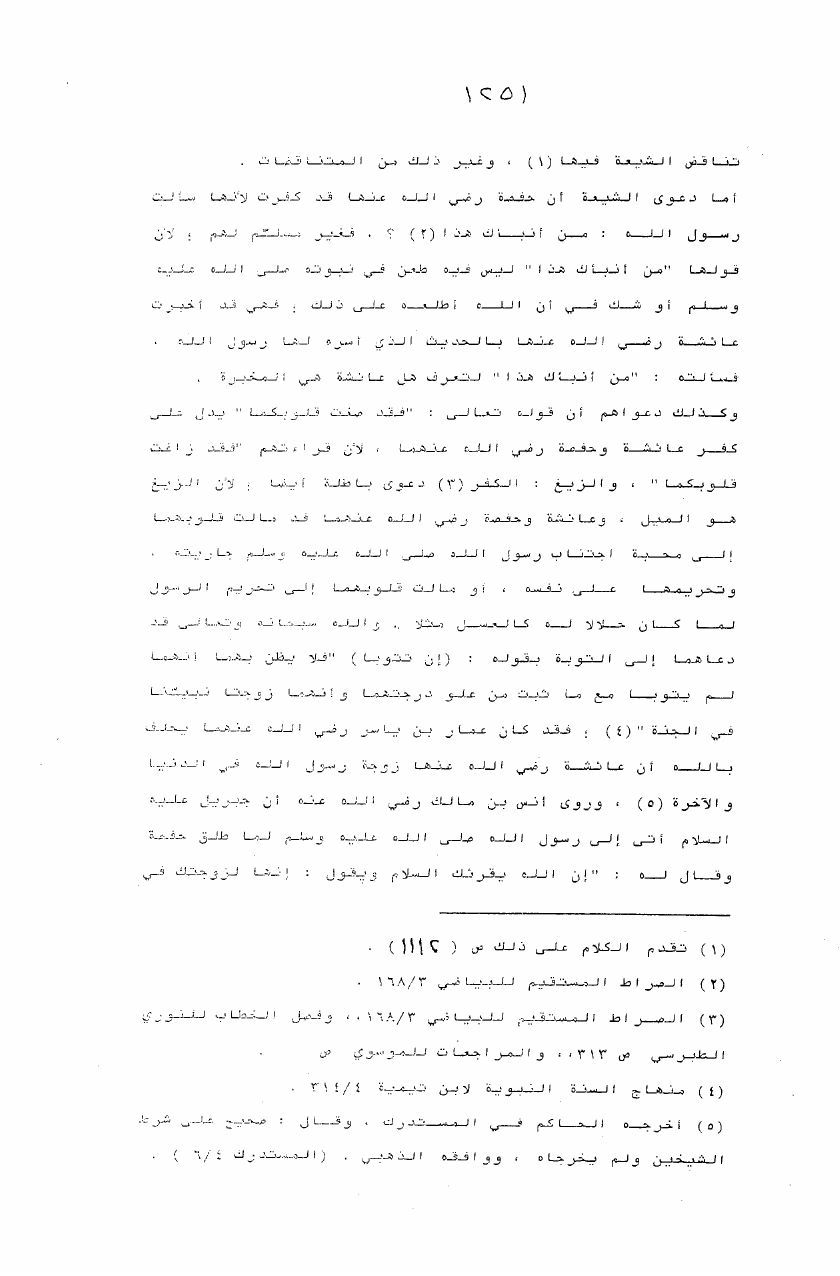 (١٢٥١
تناقض الشيعة فيها (١) ، وغير ذلك من المتناقضات .
أما دعوى الشيعة أن حفصة رضي الله عنها قد كفرت لأنها سألت
رسول الله : من أنبأك هذا (٢) ؟ . فغير مسلّم لهم ؛ لأن
قولها "من أنبأك هذا" ليس فيه طعن في نبوته صلى الله عليه
وسلم أو شك في أن الله أطلعه على ذلك ؛ فهي قد أخبرت
عائشة رضي الله عنها بالحديث الذي أسره لها رسول الله ،
فسألته : "من أنبأك هذا" لتعرف هل عائشة هي المخبرة .
وكذلك دعواهم أن قوله تعالى : "فقد صغت قلوبكما" يدل على
كفر عائشة وحفصة رضي الله عنهما ، لأن قراءتهم "فقد زاغت
قلوبكما" ، والزيغ : الكفر (٣) دعوى باطلة أيضا ؛ لأن الزيغ
هو الميل ، وعائشة وحفصة رضي الله عنهما قد مالت قلوبهما
إلى محبة اجتناب رسول الله صلى الله عليه وسلم جاريته ،
وتحريمها على نفسه ، أو مالت قلوبهما إلى تحريم الرسول
لما كان حلالا له كالعسل مثلا . والله سبحانه وتعالى قد
دعاهما إلى التوبة بقوله : (إن تتوبا) "فلا يظن بهما أنهما
لم يتوبا مع ما ثبت من علو درجتهما وأنهما زوجتا نبيّنا
في الجنة" (٤) ؛ فقد كان عمار بن ياسر رضي الله عنهما يحلف
بالله أن عائشة رضي الله عنها زوجة رسول الله في الدنيا
والآخرة (٥) ، وروى أنس بن مالك رضي الله عنه أن جبريل عليه
السلام أتى إلى رسول الله صلى الله عليه وسلم لما طلق حفصة
وقال له : "إن الله يقرئك السلام ويقول : إنها لزوجتك في
(١) تقدم الكلام على ذلك ص (١١١٢) .
(٢) الصراط المستقيم للبياضي ١٦٨/٣ .
(٣) الصراط المستقيم للبياضي ١٦٨/٣،، وفصل الخطاب للنوري
الطبرسي ص ٣١٣،، والمراجعات للموسوي ص .
(٤) منهاج السنة النبوية لابن تيمية ٣١٤/٤ .
(٥) أخرجه الحاكم في المستدرك ، وقال : صحيح على شرط
الشيخين ولم يخرجاه ، ووافقه الذهبي . (المستدرك ٦/٤ ) .